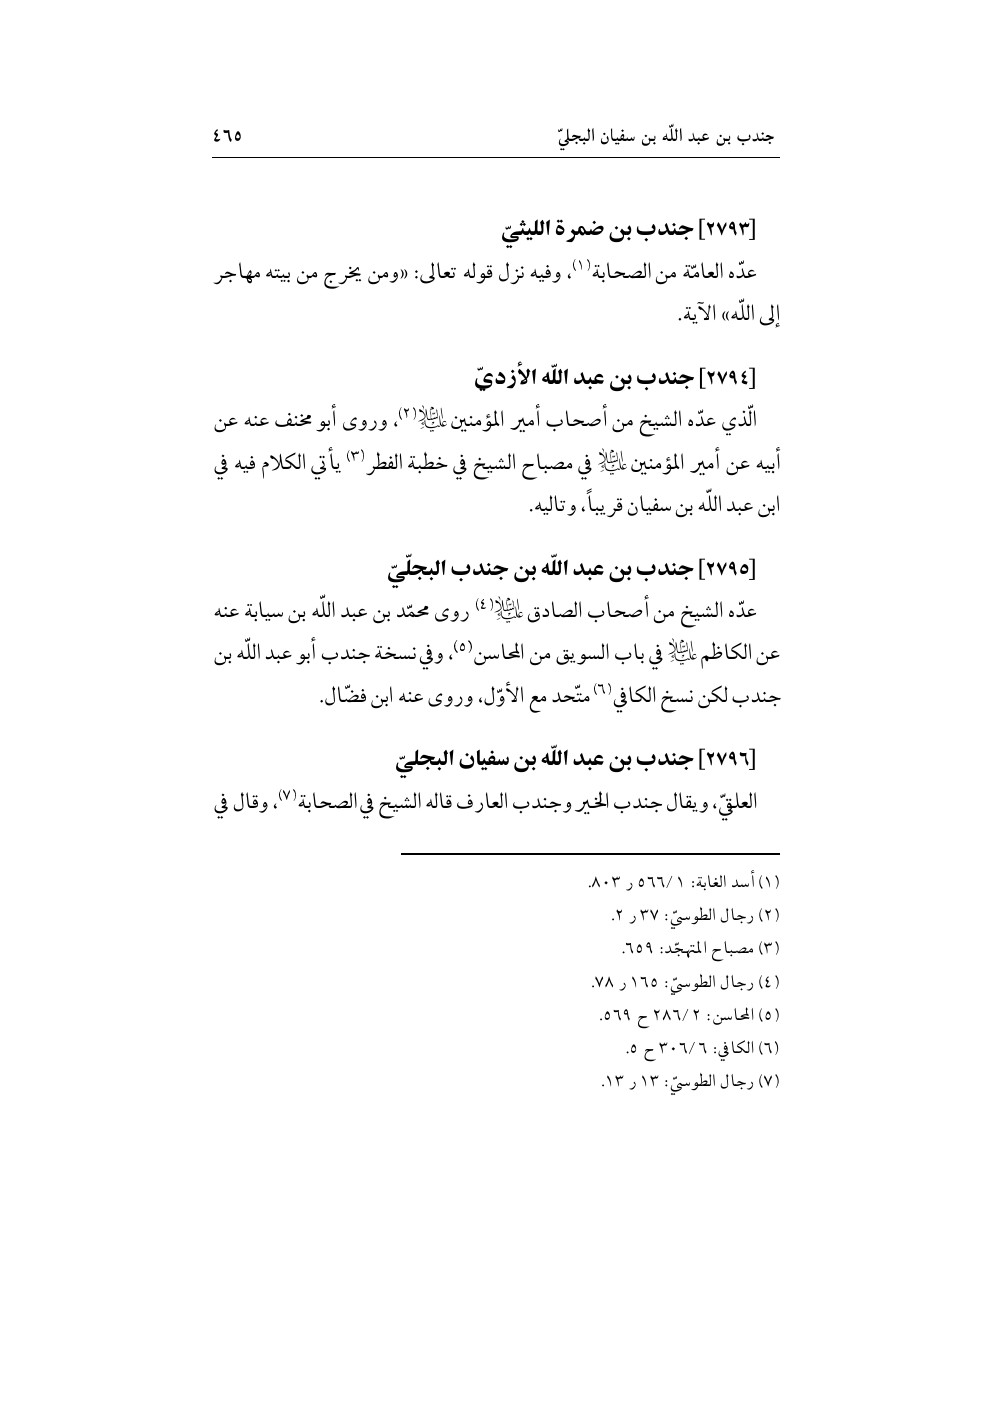 جندب بن عبد اللّه بن سفيان البجليّ ٤٦٥
[٢٧٩٣] جندب بن ضمرة الليثيّ
عدّه العامّة من الصحابة(١)، وفيه نزل قوله تعالى: «ومن يخرج من بيته مهاجر
إلى اللّه» الآية.
[٢٧٩٤] جندب بن عبد اللّه الأزديّ
الّذي عدّه الشيخ من أصحاب أمير المؤمنين عليه السلام(٢)، وروى أبو مخنف عنه عن
أبيه عن أمير المؤمنين عليه السلام في مصباح الشيخ في خطبة الفطر(٣) يأتي الكلام فيه في
ابن عبد اللّه بن سفيان قريباً، وتاليه.
[٢٧٩٥] جندب بن عبد اللّه بن جندب البجلّيّ
عدّه الشيخ من أصحاب الصادق عليه السلام(٤) روى محمّد بن عبد اللّه بن سيابة عنه
عن الكاظم عليه السلام في باب السويق من المحاسن(٥)، وفي نسخة جندب أبو عبد اللّه بن
جندب لكن نسخ الكافي(٦) متّحد مع الأوّل، وروى عنه ابن فضّال.
[٢٧٩٦] جندب بن عبد اللّه بن سفيان البجليّ
العلقيّ، ويقال جندب الخير وجندب العارف قاله الشيخ في الصحابة(٧)، وقال في
(١) أسد الغابة: ١/ ٥٦٦ ر ٨٠٣.
(٢) رجال الطوسيّ: ٣٧ ر ٢.
(٣) مصباح المتهجّد: ٦٥٩.
(٤) رجال الطوسيّ: ١٦٥ ر ٧٨.
(٥) المحاسن: ٢/ ٢٨٦ ح ٥٦٩.
(٦) الكافي: ٦/ ٣٠٦ ح ٥.
(٧) رجال الطوسيّ: ١٣ ر ١٣.